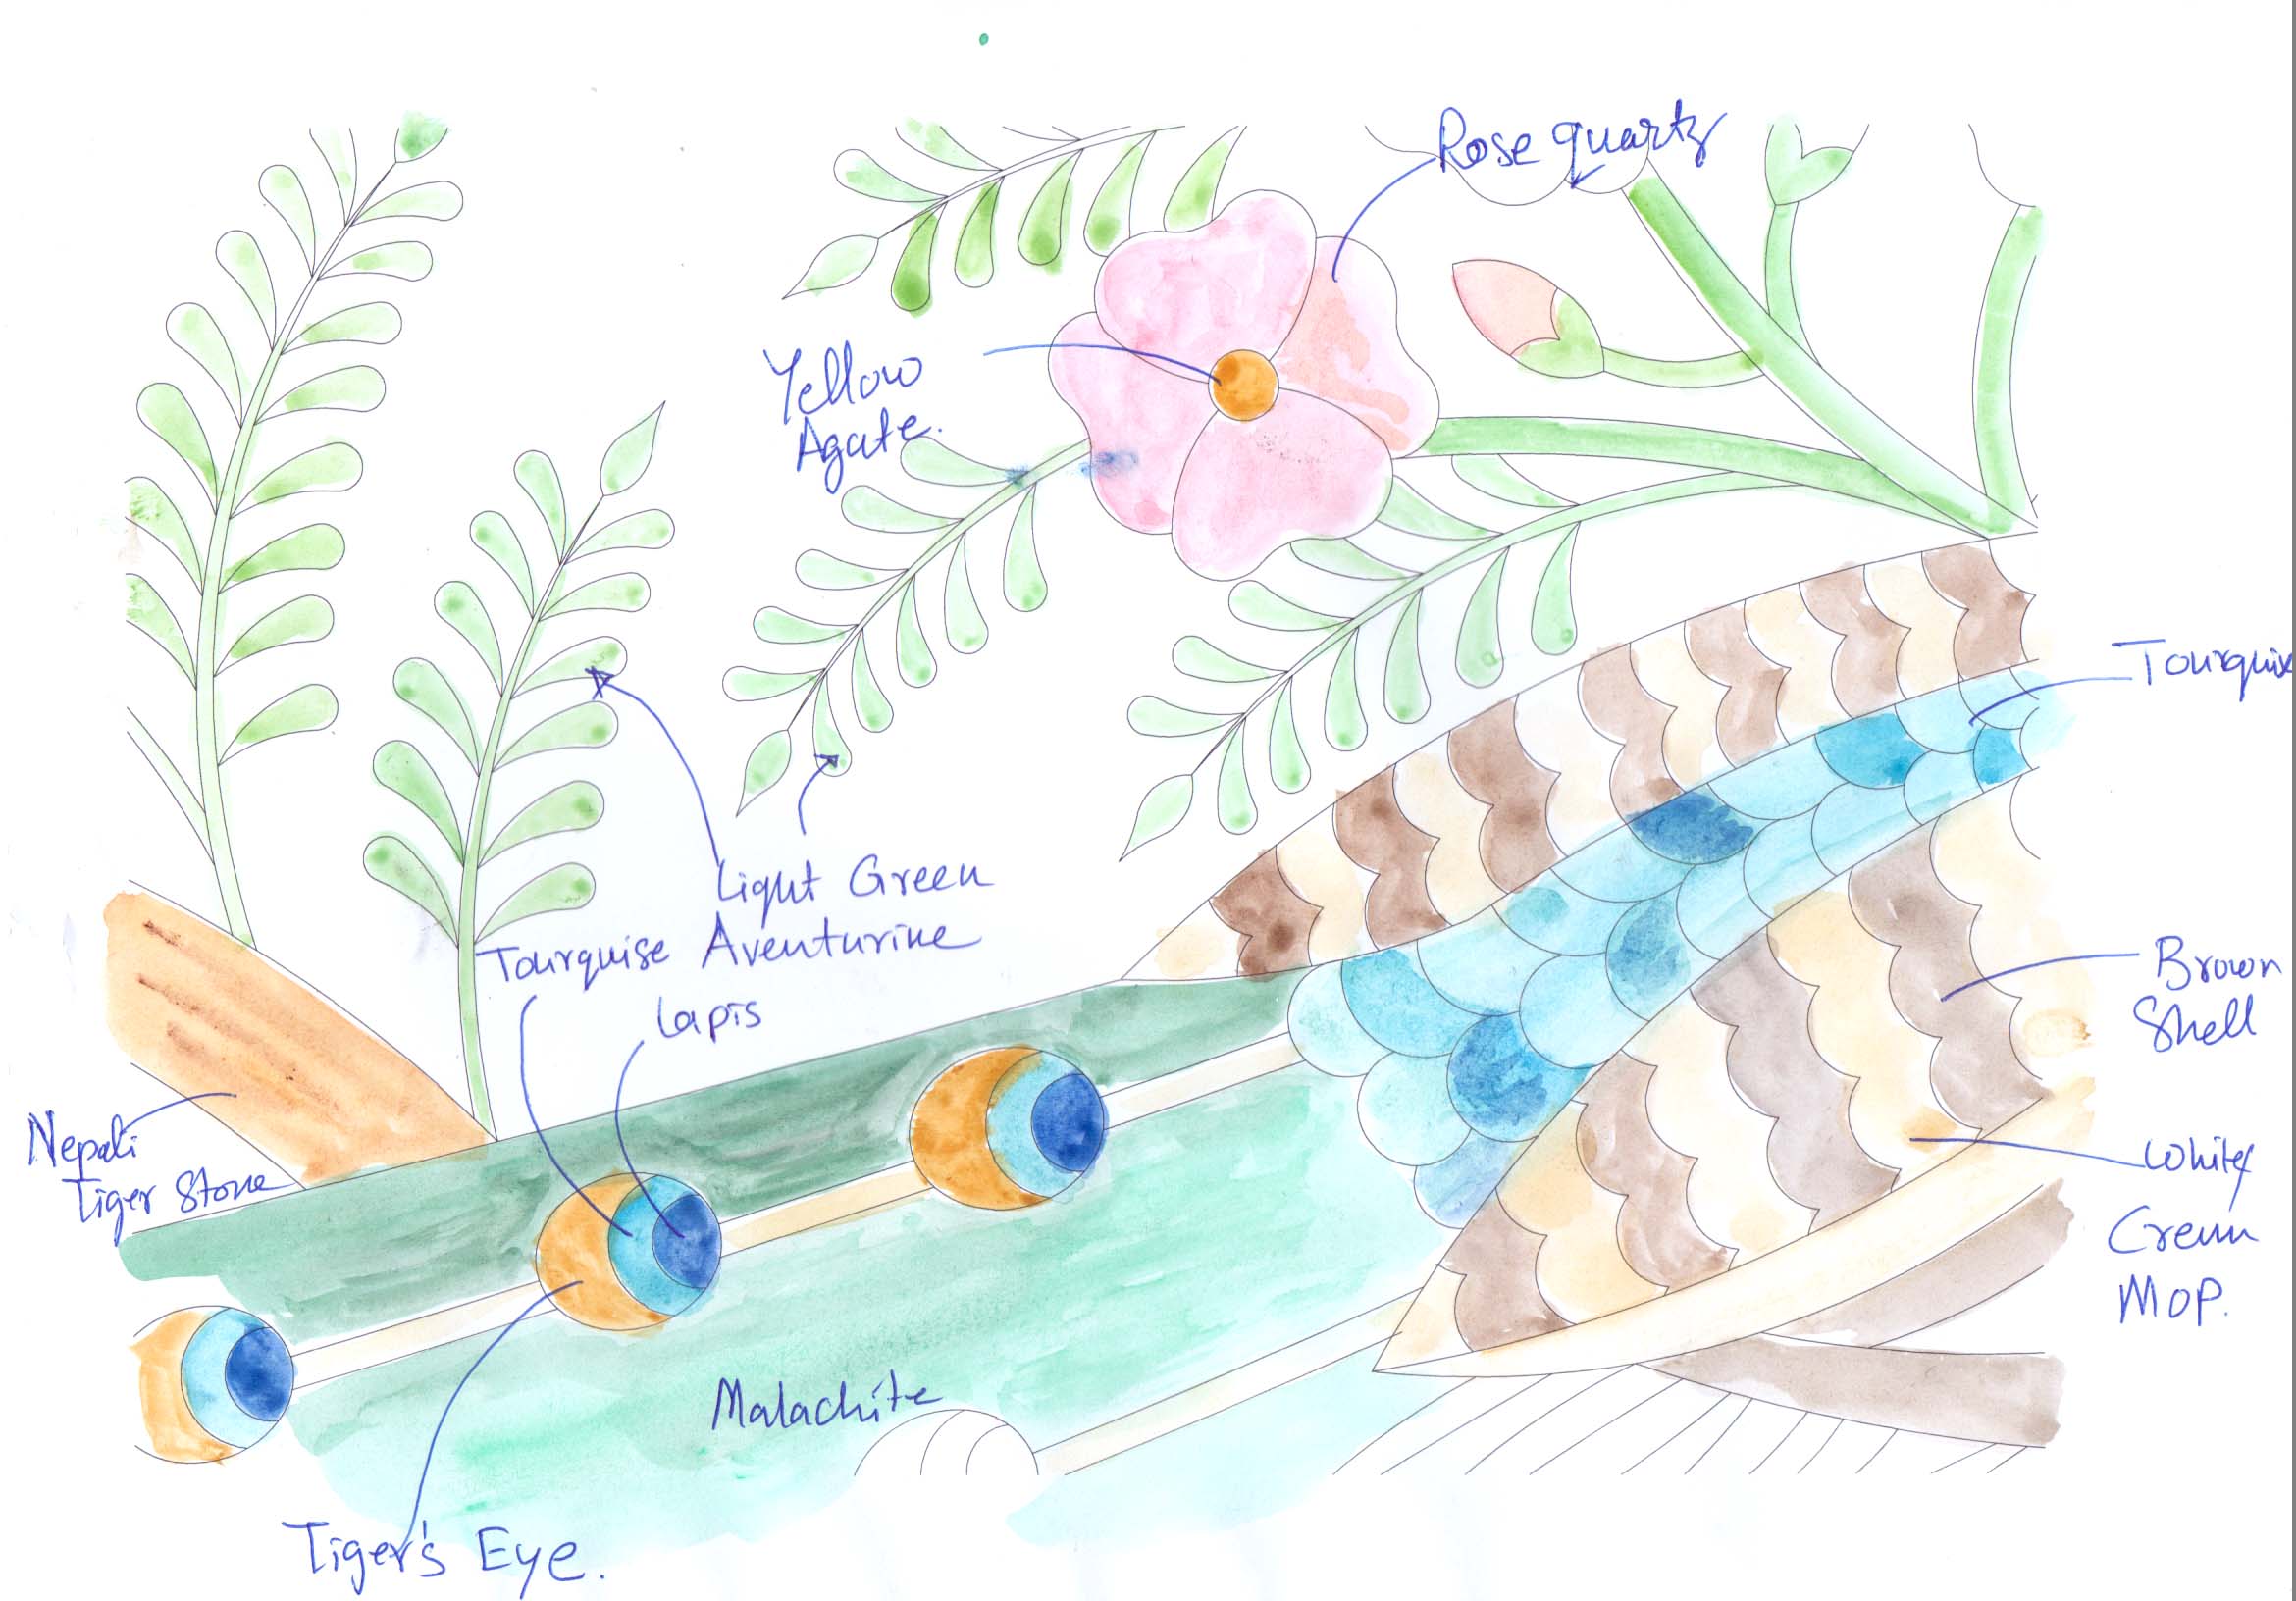 Rose quartz
Yellow
Agate.
Tourquis
Light Green
Aventurine
Tourquise
Lapis
Brown
Shell
Nepali
Tiger Stone
White
Cream
MOP.
Malachite
Tiger's Eye.